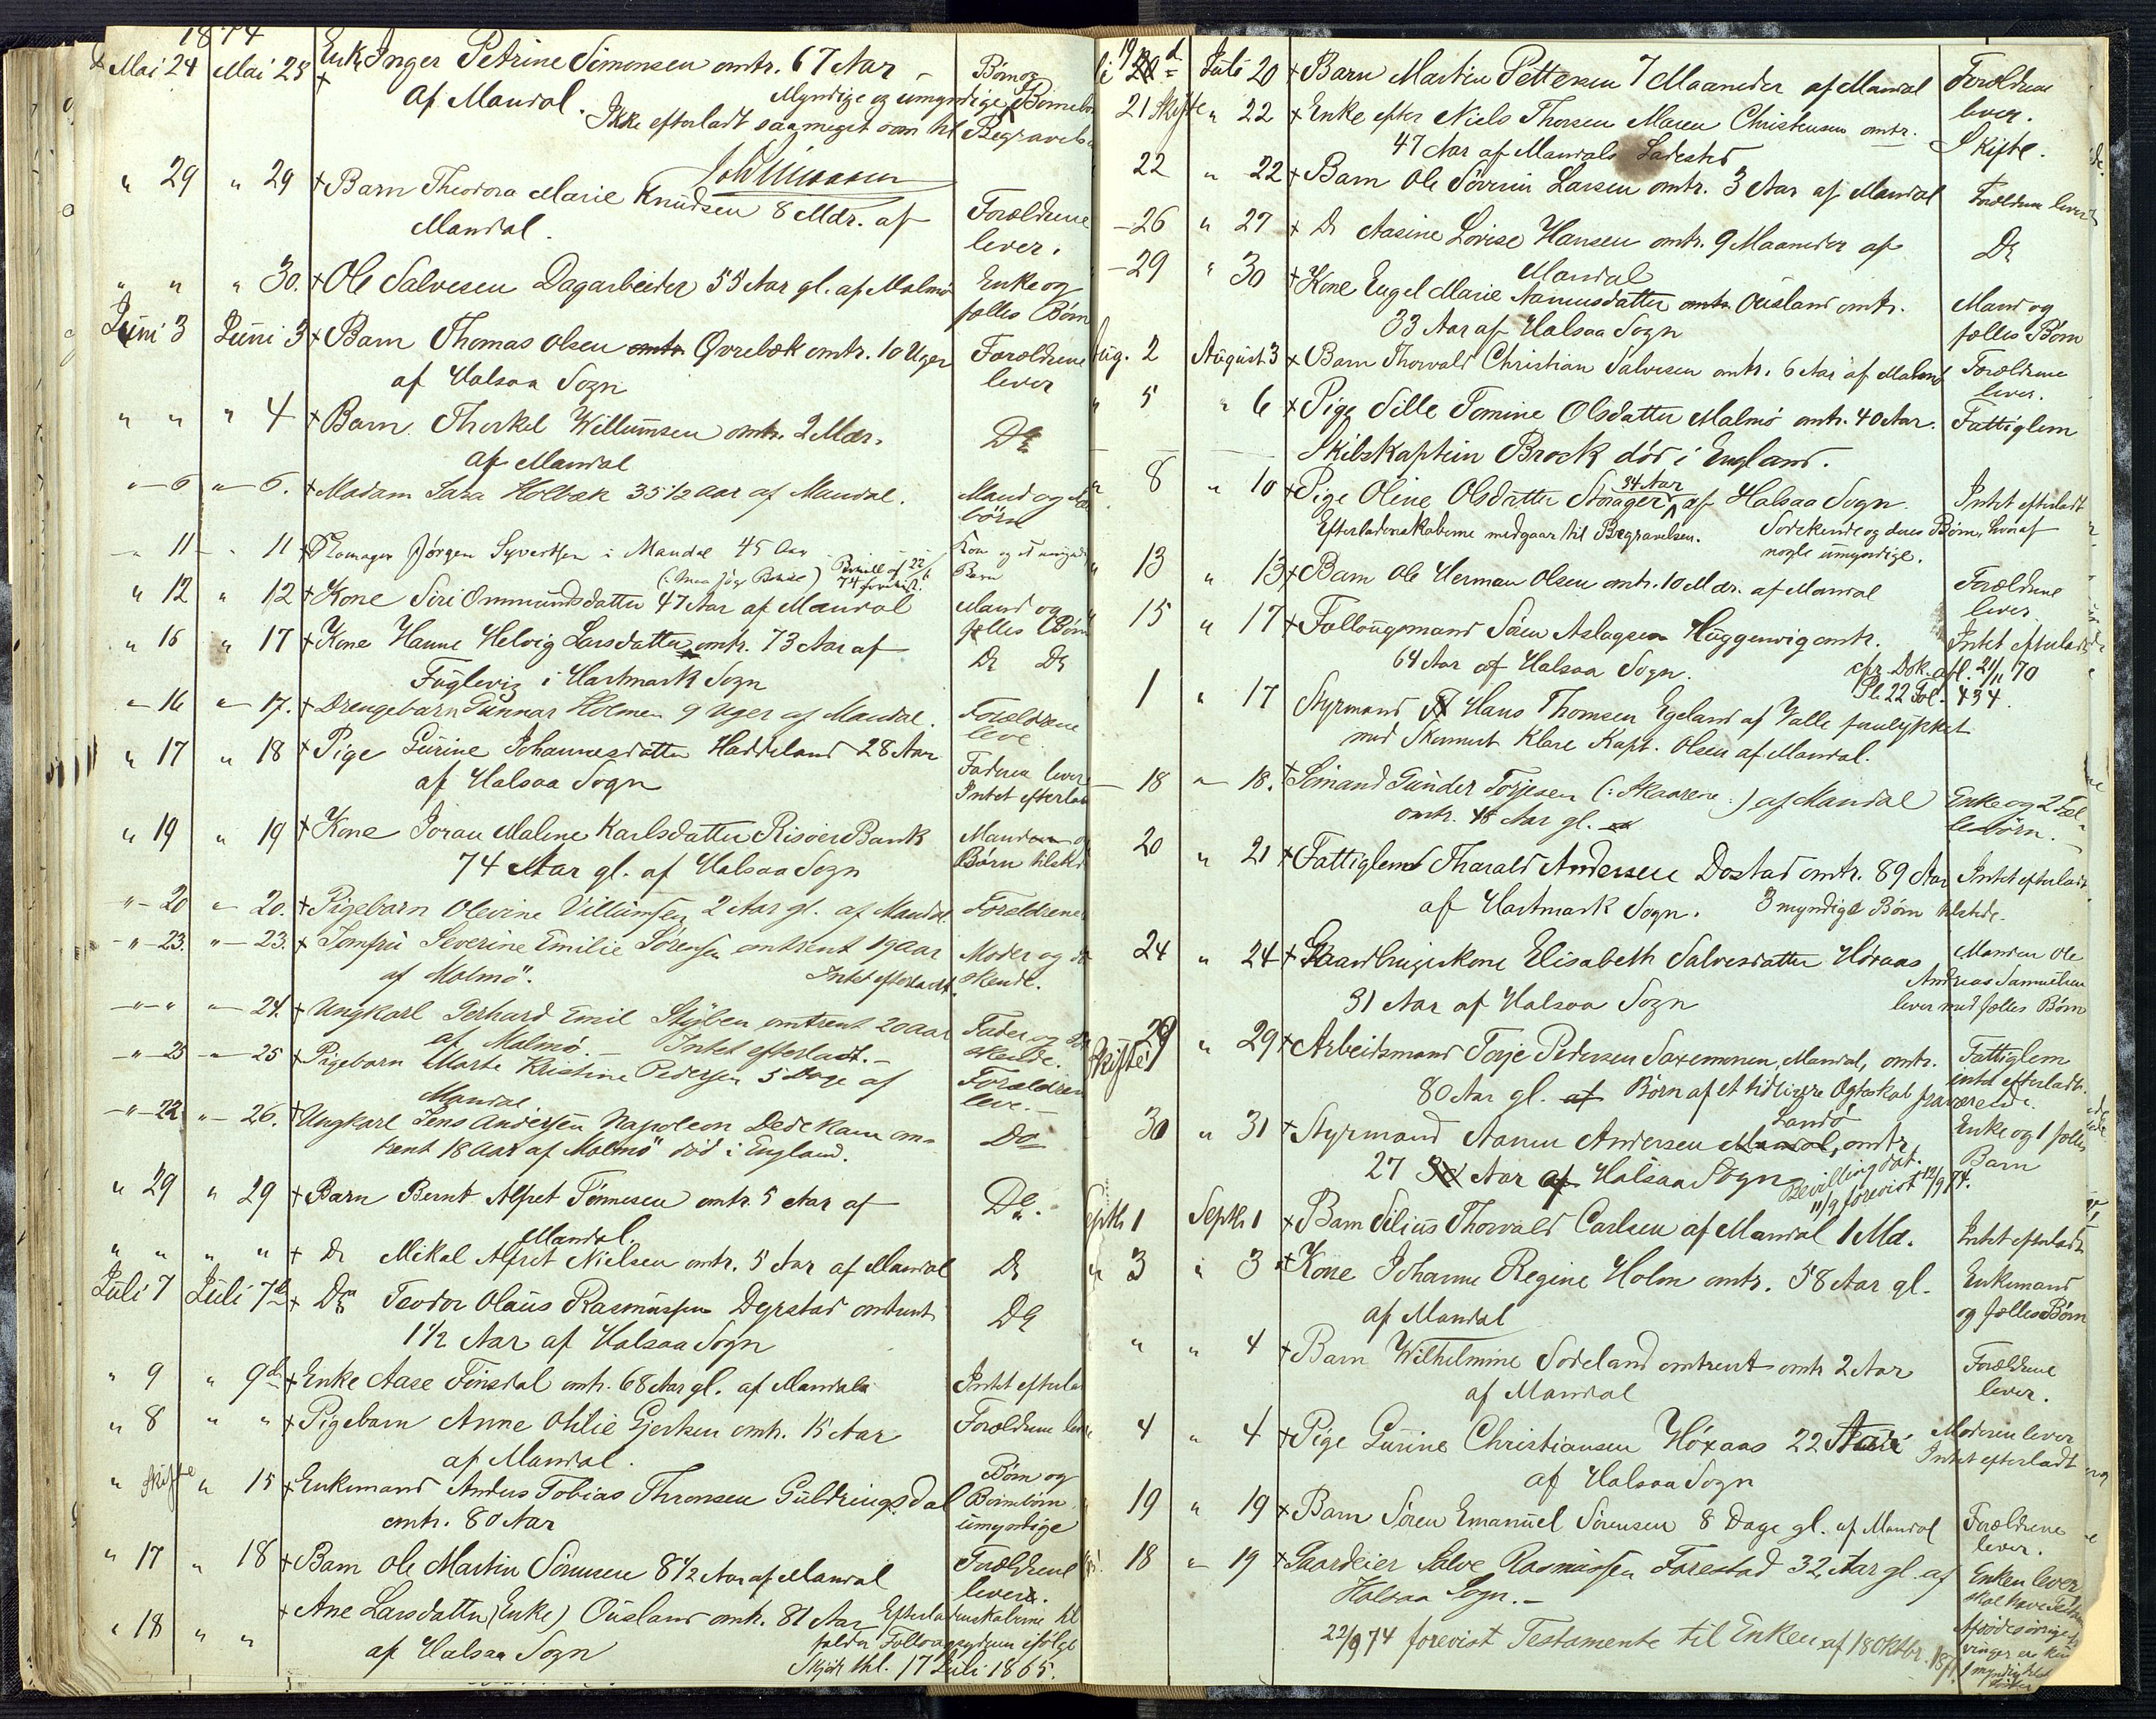 1874
Mai 24 Mai 28 Enke Inger Petrine Simonsen omtr. 67 Aar - Børn og
af Mandal. Myndige og umyndige Børnebørn
Ikke efterladt saa meget som til Begravelse
" 29 " 29 + Barn Theodora Marie Knudsen 8 Mdr. af Forældrene
Mandal. lever.
" " " 30. + Ole Salvesen Dagarbeider 55 Aar gl. af Malmø Enke og
fælles Børn
Juni 3 Juni 3 + Barn Thomas Olsen omtr. Øvrebæk omtr. 10 Uger Forældrene
af Halsaa Sogn lever
" " " 4 + Barn Therkel Willumsen omtr. 2 Mdr. Do
af Mandal
" 6 " 6. + Madam Sara Holbæk 35 1/2 Aar af Mandal. Mand og
børn
" 11 " 11 Jørgen Syvertsen i Mandal 45 Aar
Barn
" 12 " 12 + Kone Siri Ommundsdatter 47 Aar af Mandal Mand og
fælles Børn
" 16 " 17 + Kone Hanne Helvig Larsdatter omtr. 73 Aar af Do Do
Fuglevig i Hartmark Sogn
" 16 " 17. + Drengebarn Gunnar Holmen 9 Uger af Mandal. Forældrene
leve
" 17 " 18 + Pige Gurine Johannesdatter Haddeland 28 Aar Faderen lever
af Halsaa Sogn Intet efterladt
" 19 " 19 + Kone Joran Maline Karlsdatter Risøer Bank Manden og
74 Aar gl. af Halsaa Sogn Børn tilsted
" 20 " 20. + Pigebarn Olevine Villumsen 2 Aar gl. af Mandal. Forældrene
" 23. " 23. + Jomfru Severine Emilie Sørensen omtrent 19 aar Moder og
af Malmø. Intet efterladt. skende.
" " " 24. + Ungkarl Gerhard Emil Styben omtrent 20 aar Fader og
af Malmø. - Intet efterladt. - skende.
" 25 " 25 + Pigebarn Marte Kristine Pedersen 5 Dage af Forældrene
Mandal leve. -
" 22 " 26. + Ungkarl Jens Andersen Napoleon Dedekam om- Do
trent 18 Aar af Malmø død i England.
" 29 " 29 + Barn Bernt Alfret Tønnesen omtr. 5 Aar af Do.
Mandal.
" " " " + Do Mikal Alfret Nielsen omtr. 5 Aar af Mandal Do
Juli 7 Juli 7de + Do Teodor Olaus Rasmussen Dyrstad omtrent Do
1 1/2 Aar af Halsaa Sogn
" 9 " 9de + Enke Aase Finsdal omtr. 68 Aar gl. af Mandal Intet efterladt
" 8 " " + Pigebarn Anne Otilie Gjertsen omtr. 15 Aar Forældrene lever
af Mandal.
" Skifte " 15 + Enkemand Anders Tobias Thronsen Guldringsdal Børn og
omtr. 80 Aar Børnebørn
umyndige
" 17 " 18 + Barn Ole Martin Sørensen 8 1/2 Aar af Mandal Forældrene
lever.
" 18 " " + Ane Larsdatter (Enke) Ousland omtr. 81 Aar Efterladenskaberne til
af Halsaa Sogn ifølge
Skjøde thl. 17 Juli 1865.
Juli 20 + Barn Martin Pettersen 7 Maaneder af Mandal Forældrene
lever.
21 Skifte " 22 + Enke efter Niels Thorsen Maren Christensen omtr. Skifte.
47 Aar af Mandals Ladested
22 " 22 + Barn Ole Severin Larsen omtr. 3 Aar af Mandal Forældrene lever
26 " 27 + Do Aasine Lovise Hansen omtr. 9 Maaneder af Do
Mandal
29 " 30 + Kone Engel Marie Aanensdatter omtr. Ousland omtr. Mand og
33 Aar af Halsaa Sogn fælles Børn
Aug. 2 August 3 + Barn Thorvald Christian Salvesen omtr. 6 Aar af Malmø Forældrene
lever.
5 " 6 + Pige Sille Tomine Olsdatter Malmø omtr. 40 Aar. Fattiglem
Skibskaptein Brock død i England.
8 " 10 + Pige Oline Olsdatter Storager 34 Aar af Halsaa Sogn. Intet efterladt
Efterladenskaberne medgaar til Begravelsen. Sødskende og deres Børn, hvoraf
nogle umyndige.
13 " 13 + Barn Ole Herman Olsen omtr. 10 Mdr. af Mandal Forældrene
lever
15 " 17 + Follougsmand Søren Aslagsen Huggenvig omtr. Intet efterladt
64 Aar af Halsaa Sogn. cfr. Dok. afl. 21/11 70
Pr. 22 Fol. 434.
1 " 17 Styrmand Hans Thomsen Egeland af Valle forulykket
med Skonnert Klare Kapt. Olsen af Mandal.
18 " 18. + Sømand Gunder Torjesen (: Skaarene :) af Mandal Enke og 2 Fæl-
omtr. 48 Aar gl. lesbørn.
20 " 21 + Fattiglem Tharald Andersen Dostad omtr. 89 Aar Intet efterladt
af Hartmark Sogn. 3 myndige Børn tilstede.
24 " 24 + Gaardbrugerkone Elisabeth Salvesdatter Høraas Manden Ole
Andreas Samuelsen
31 Aar af Halsaa Sogn lever med fælles Børn
29 Skifte " 29 + Arbeidsmand Torje Pedersen Saxemonen, Mandal, omtr. Fattiglem
intet efterladt.
80 Aar gl. af Børn af et tidligere Ægteskab fraværende.
30 " 31 + Styrmand Aanen Andersen Mandal, Landø omtr. Enke og 1 fælles
27 Aar af Halsaa Sogn Bevilling dat. Barn
11/9 forevist 12/9 74.
Septb 1 Septb 1 + Barn Silius Thorvald Carlsen af Mandal 1 Md. Intet efterladt
" 3 " 3 + Kone Johanne Regine Holm omtr. 58 Aar gl. Enkemand
af Mandal og fælles Børn
" " 4 + Barn Wilhelmine Sodeland omtrent omtr 2 Aar Forældrene
af Mandal lever.
4 " 4 + Pige Gurine Christiansen Høxaas 22 Aar Moderen lever
af Halsaa Sogn Intet efterladt
19 " 19 + Barn Søren Emanuel Sørensen 8 Dage gl. af Mandal Forældrene
lever.
18 " 19 + Gaardeier Salve Rasmussen Forestad 32 Aar gl. af Enken lever
Halsaa Sogn. - skal have
22/9 74 forevist Testamente til Enken af 18 Oktbr.